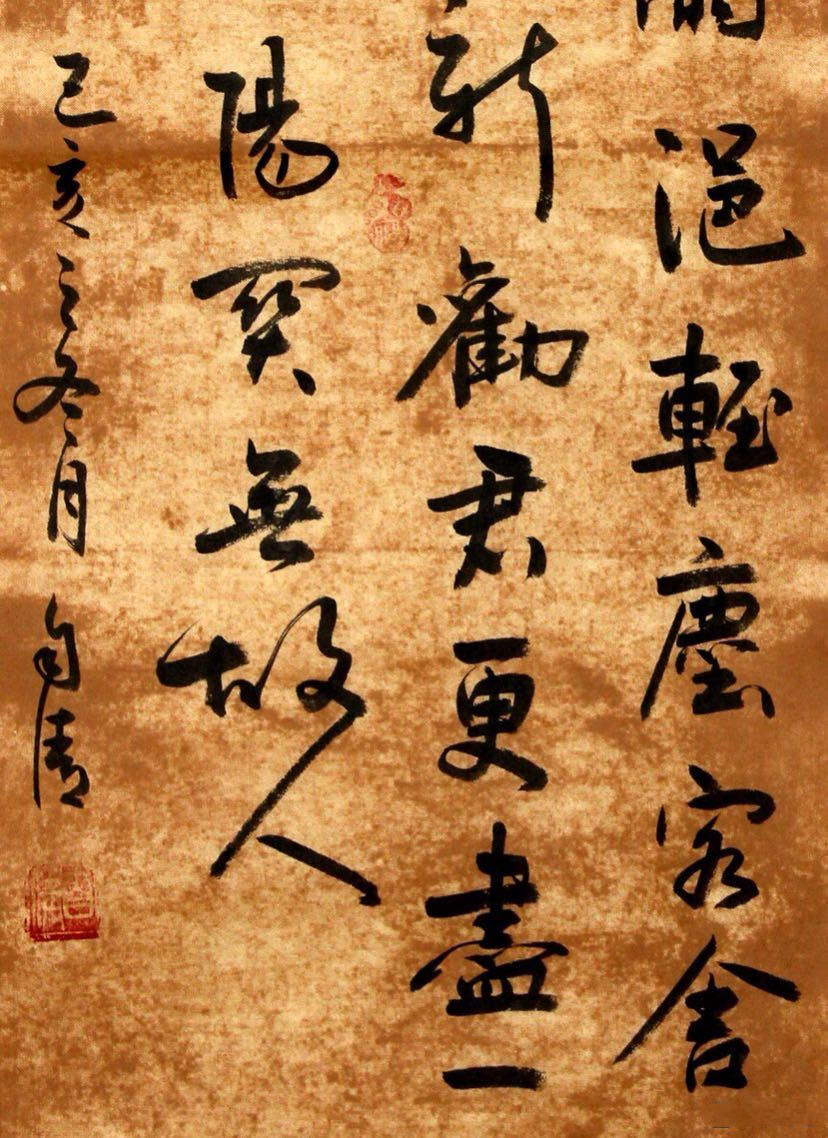 浥輕塵客舍
新勸君更盡一
陽關無故人
己亥之冬月 清